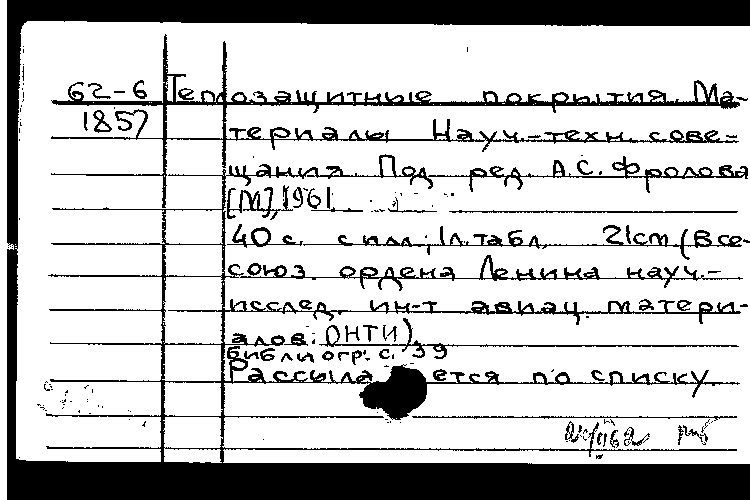 62-6 Теплозащитные покрытия. Ма-
1857 териалы Науч.-техн. сове-
щания. Под ред. А.С. Фролова
[М], 1961
40 с. с илл.; 1 л. табл. 21 см. (Все-
союз. ордена Ленина науч.-
исслед. ин-т авиац. матери-
алов: ОНТИ).
Библиогр.: с. 39
Рассылается по списку.